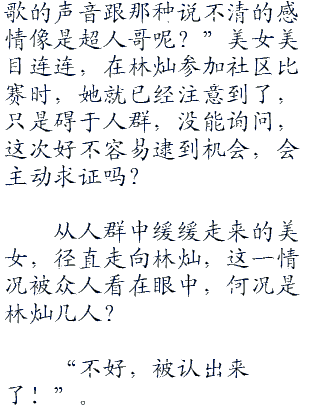 歌的声音跟那种说不清的感
情像是超人哥呢？”美女美
目连连，在林灿参加社区比
赛时，她就已经注意到了，
只是碍于人群，没能询问，
这次好不容易逮到机会，会
主动求证吗？
从人群中缓缓走来的美
女，径直走向林灿，这一情
况被众人看在眼中，何况是
林灿几人？
“不好，被认出来
了！”。